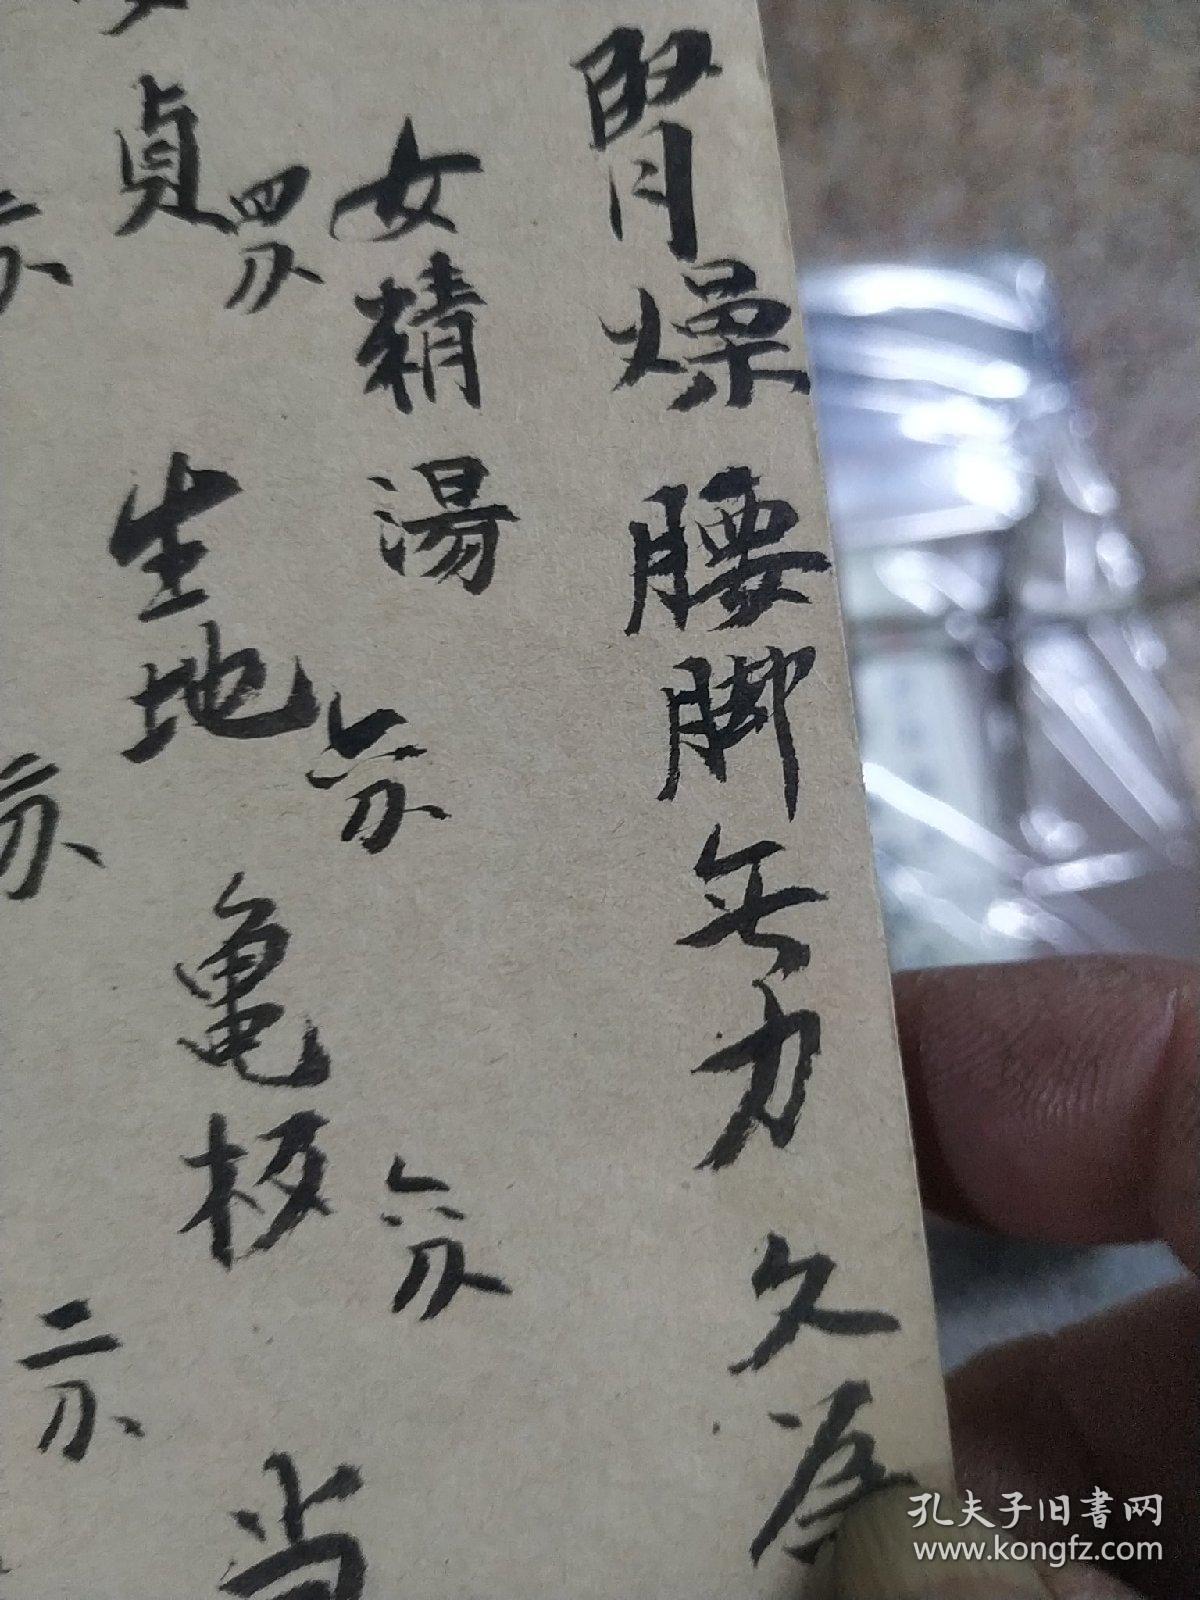 腎燥 腰脚無力 久
女精湯
六分 六分
貞 生地 亀板 当
四分
二分 二分
孔夫子旧書网
www.kongfz.com